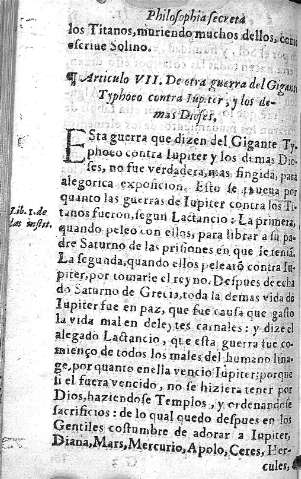 Philosophia secreta
los Titanos, muriendo muchos dellos, como
escriue Solino.
¶ Articulo VII. De otra guerra del Gigante
Typhoeo contra Iupiter, y los de-
mas Dioses,
ESta guerra que dizen del Gigante Ty-
phoeo contra Iupiter y los demas Dio-
ses, no fue verdadera, mas fingida, para
alegorica exposicion. Esto se prueua por
quanto las guerras de Iupiter contra los Ti-
tanos fueron, segun Lactancio: La primera,
Lib. 1. de
las instit.
quando peleo con ellos, para librar a su pa-
dre Saturno de las prisiones en que le tenia.
La segunda, quando ellos pelearõ contra Iu-
piter, por tomarle el reyno. Despues de echa
do Saturno de Grecia, toda la demas vida de
Iupiter fue en paz, que fue causa que gasto
la vida mal en deleytes carnales: y dize el
alegado Lactancio, que esta guerra fue co-
mienço de todos los males del humano lina-
ge, por quanto en ella vencio Iupiter: porque
si el fuera vencido, no se hiziera tener por
Dios, haziendose Templos, y ordenandose
sacrificios: de lo qual quedo despues en los
Gentiles costumbre de adorar a Iupiter,
Diana, Mars, Mercurio, Apolo, Ceres, Her-
cules,